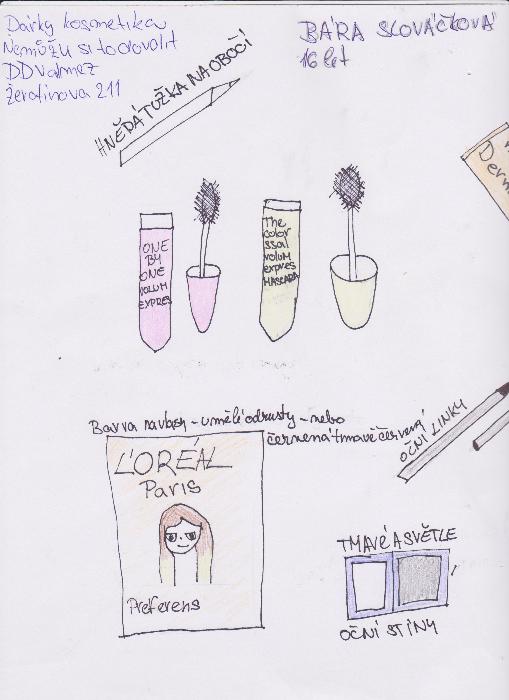 Dárky kosmetika
Nemůžu si to dovolit
DD Valmez
Žerotínova 211
BÁRA SLOVÁČKOVÁ
16 let
HNĚDÁ TUŽKA NA OBOČÍ
ONE
BY
ONE
VOLUM
EXPRES
The
color
ssal
volum
expres
MASCARA
Barva na vlasy - umělé odrosty - nebo
červená tmavě červená
OČNÍ LINKY
L'ORÉAL
Paris
Préférens
TMAVÉ A SVĚTLE
OČNÍ STÍNY